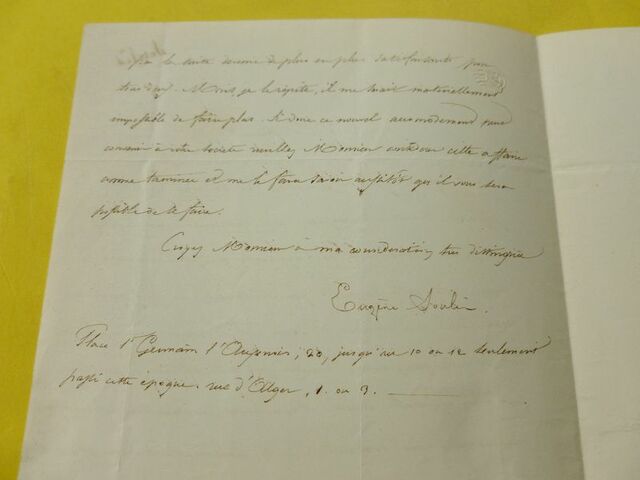 la suite devenue de plus en plus satisfaisante pour
tous deux. Mais, je le répète, il me serait matériellement
impossible de faire plus. Si donc ce nouvel accommodement peut
convenir à votre Société veuillez Monsieur considérer cette affaire
comme terminée et me le faire savoir aussitôt qu'il vous sera
possible de le faire.
Croyez Monsieur à ma considération très distinguée
Eugène Soulié
Place St Germain l'Auxerrois, 20, jusqu'au 10 ou 12 seulement
passé cette époque. rue d'Alger, 1. ou 3.